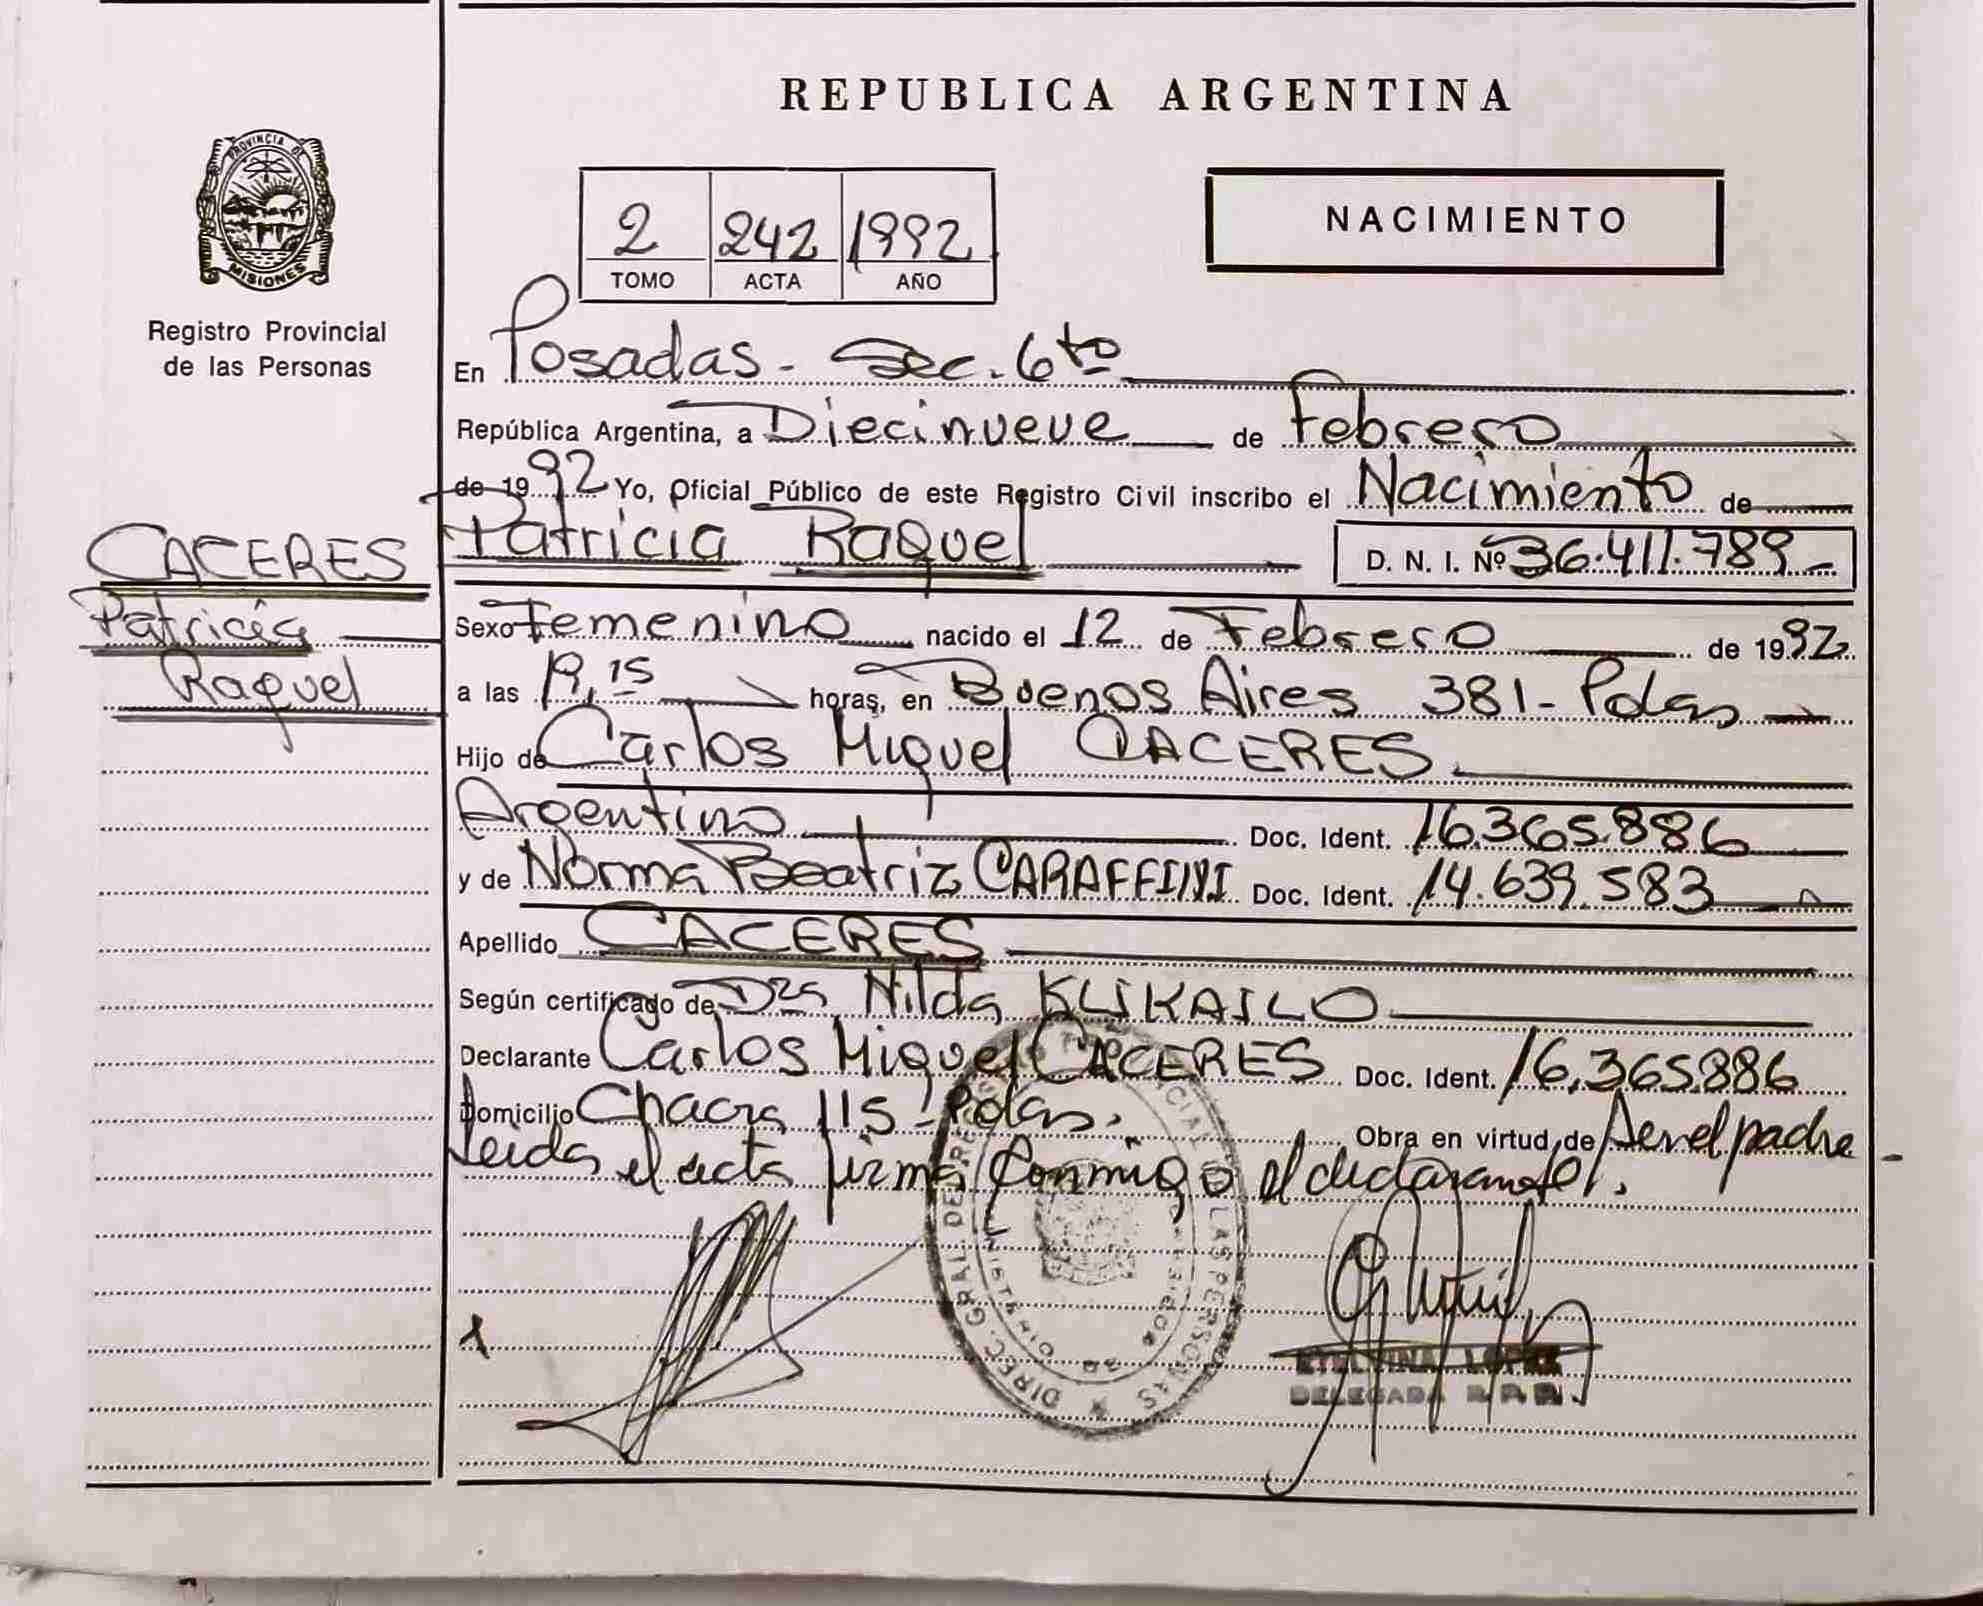 REPUBLICA ARGENTINA
PROVINCIA DE
MISIONES
Registro Provincial
de las Personas
NACIMIENTO
2 242 1992
TOMO ACTA AÑO
En Posadas - Sec. 6to
República Argentina, a Diecinueve de Febrero
de 1992 Yo, Oficial Público de este Registro Civil inscribo el Nacimiento de
CACERES
Patricia
Raquel
Patricia Raquel D. N. I. Nº 36.411.789
Sexo Femenino nacido el 12 de Febrero de 1992
a las 19,15 horas, en Buenos Aires 381 - Pdas
Hijo de Carlos Miguel CACERES
Argentino Doc. Ident. 16.365.886
y de Norma Beatriz CARAFFINI Doc. Ident. 14.639.583
Apellido CACERES
Según certificado de Dra Nilda KLIKAILO
Declarante Carlos Miguel CACERES Doc. Ident. 16.365.886
Domicilio Chacra 115 - Pdas. Obra en virtud de ser el padre
Leida el acta firma conmigo el declarante.
DIREC. GRAL. DE REG. PROVINCIAL DE LAS PERSONAS
ETELVINA LOPEZ
DELEGADA R.P.P.